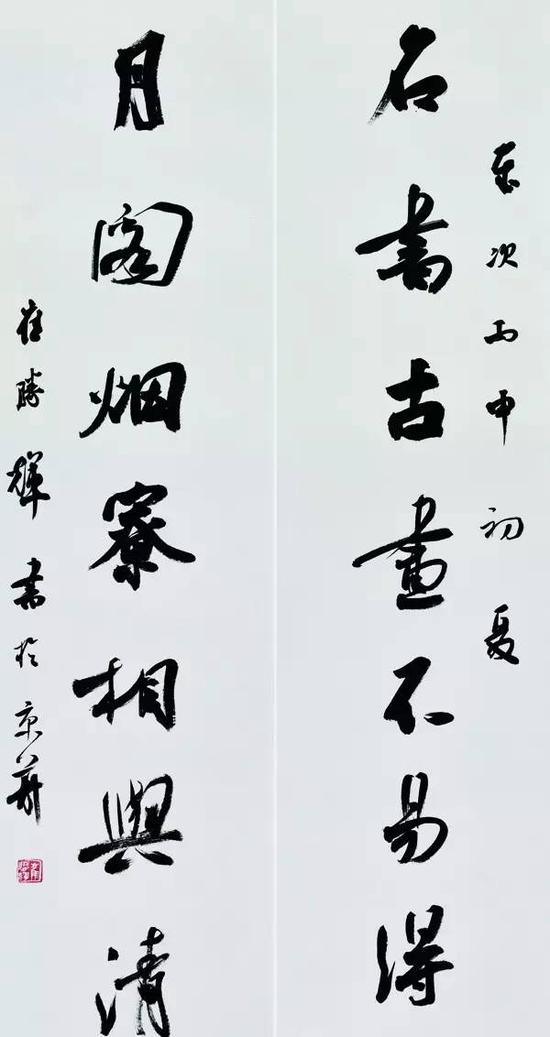 歲次丙申初夏
石書古畫不易得
月閣烟寮相與清
崔勝輝書於京華